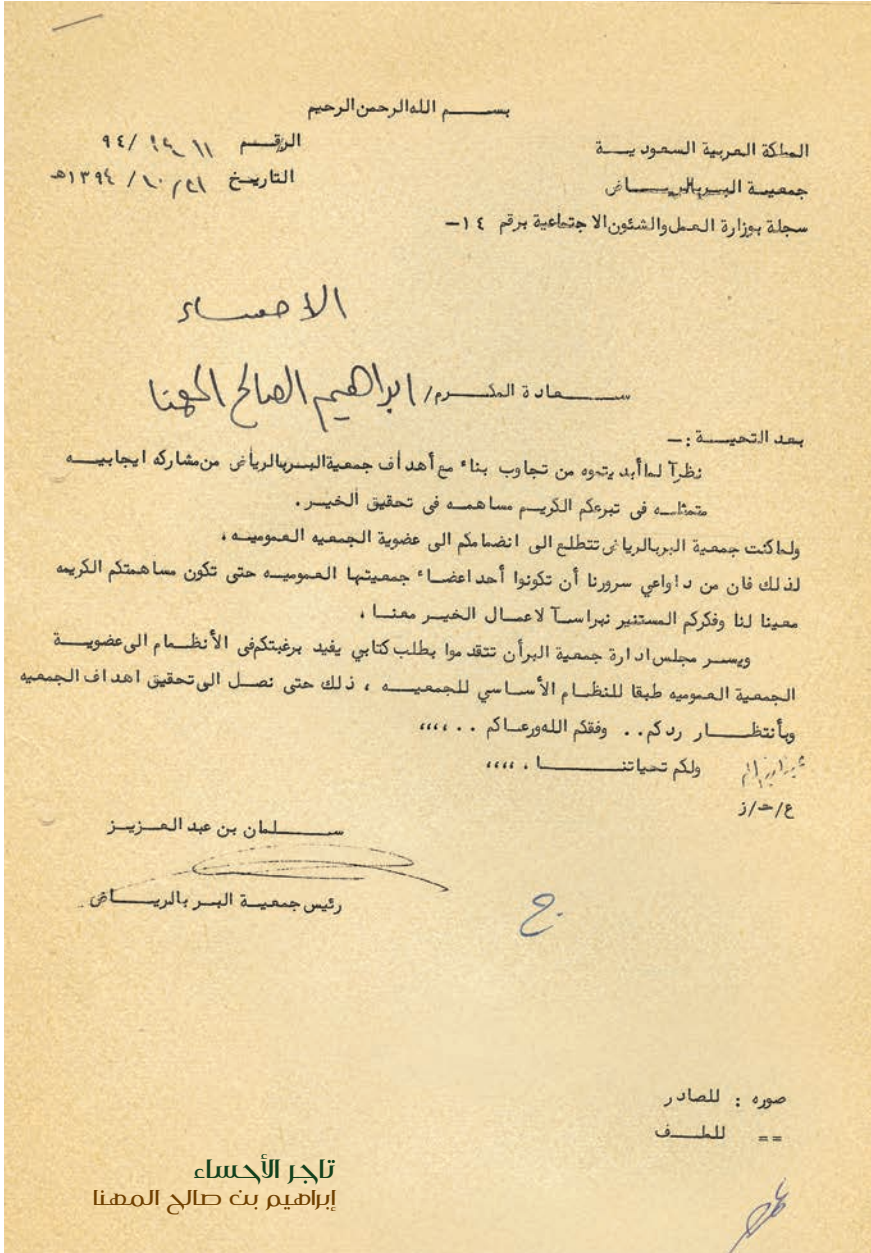 بسم الله الرحمن الرحيم
المملكة العربية السعودية
جمعية البر بالرياض
سجلة بوزارة العمل والشئون الاجتماعية برقم ١٤-
الرقم /٩٤
التاريخ ٢١/ ١٠/ ١٣٩٤هـ
الاحساء
سعادة المكرم/ ابراهيم الصالح المهنا
بعد التحية :-
نظرآ لما أبديتموه من تجاوب بناء مع أهداف جمعية البر بالرياض من مشاركه ايجابيه
متمثله فى تبرعكم الكريم مساهمه فى تحقيق الخير .
ولما كنت جمعية البر بالرياض تتطلع الى انضمامكم الى عضوية الجمعيه العموميه ،
لذلك فان من دواعي سرورنا أن تكونوا أحد اعضاء جمعيتها العموميه حتى تكون مساهمتكم الكريمه
معينا لنا وفكركم المستنير نبراسآ لاعمال الخير معنا ،
ويسر مجلس ادارة جمعية البر أن تتقدموا بطلب كتابي يفيد برغبتكم فى الأنظمام الى عضوية
الجمعية العموميه طبقا للنظام الأساسي للجمعيه ، ذلك حتى نصل الى تحقيق اهداف الجمعيه
وبأنتظار ردكم .. وفقكم الله ورعاكم .. ،،،،
ولكم تحياتنا . ،،،،
ع/ح/ز
سلمان بن عبد العزيز
رئيس جمعية البر بالرياض
ج
صوره : للصادر
== للملف
تاجر الأحساء
إبراهيم بن صالح المهنا